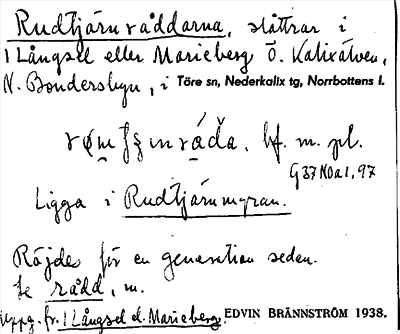 Rudtjärnråddarna, slåttrar i
1 Långsel eller Marieberg Ö. Kalixälven,
N. Bondersbyn, i Töre sn, Nederkalix tg, Norrbottens l.
bf. m. pl.
G 37 N0a1, 97
Ligga i Rudtjärnmyran.
Röjdes för en generation sedan.
Se rådd, m.
Uppg. fr. 1 Långsel el. Marieberg EDVIN BRÄNNSTRÖM 1938.